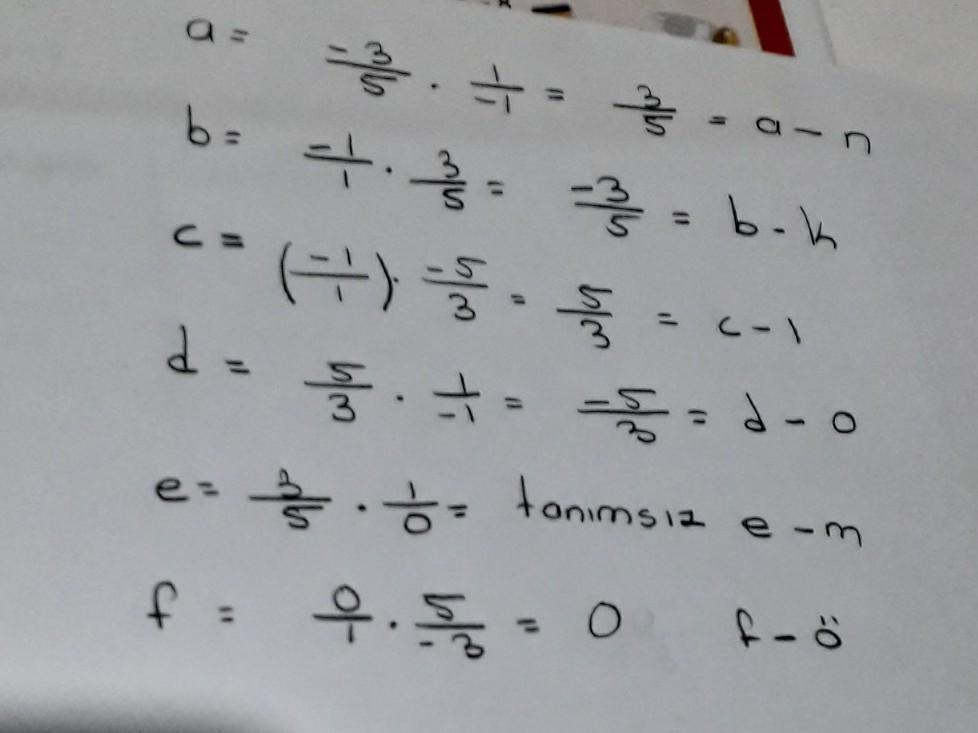 a = -3/5 . 1/-1 = 3/5 = a - n
b = -1/1 . 3/5 = -3/5 = b - k
c = (-1/1) . -5/3 = 5/3 = c - l
d = 5/3 . 1/-1 = -5/3 = d - o
e = 3/5 . 1/0 = tanımsız e - m
f = 0/1 . 5/-3 = 0 f - ö